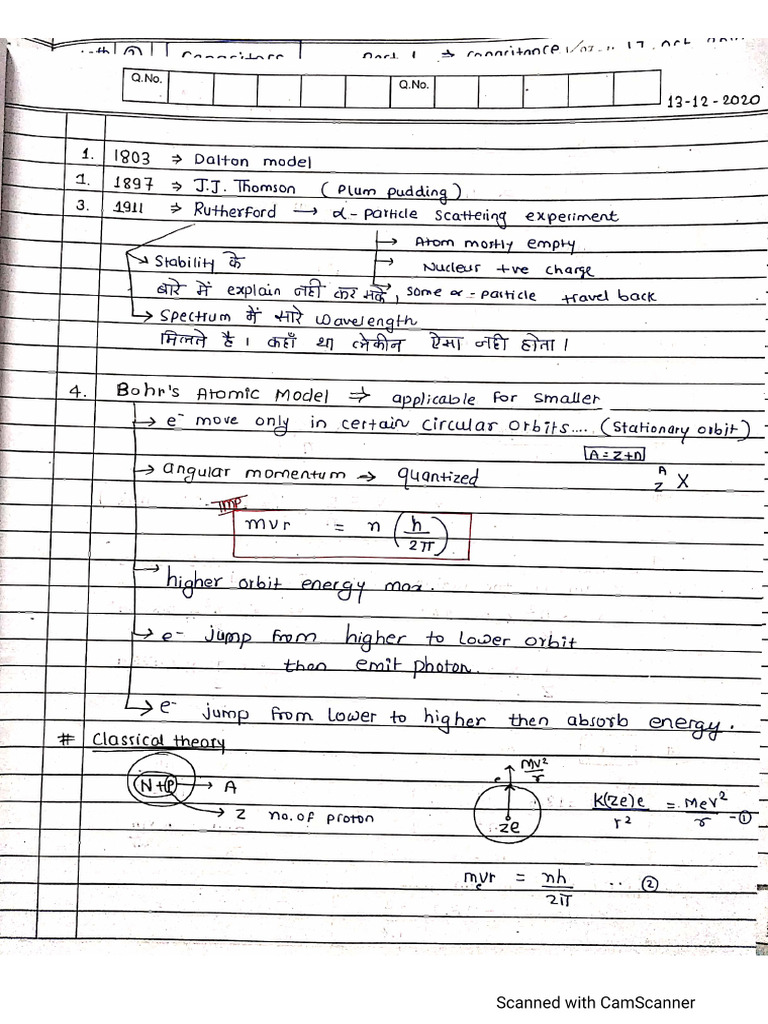 Capacitors Part 1 ⇒ capacitance
Q.No. Q.No.
13-12-2020
1. 1803 ⇒ Dalton model
1. 1897 ⇒ J.J. Thomson (Plum pudding)
3. 1911 ⇒ Rutherford → α-particle scattering experiment
→ Atom mostly empty
→ Stability के → Nucleus +ve charge
बारे में explain नही कर सके, some α-particle travel back
→ Spectrum में सारे wavelength
मिलते है। कहाँ था लेकीन ऐसा नही होता।
4. Bohr's Atomic Model ⇒ applicable for smaller
→ e⁻ move only in certain circular orbits.... (Stationary orbit)
A = Z+n
→ angular momentum → quantized ᴬ_Z X
Imp
mvr = n (h/2π)
→ higher orbit energy max.
→ e⁻ jump from higher to lower orbit
then emit photon.
→ e⁻ jump from lower to higher then absorb energy.
# Classical theory
N+P → A
→ Z no. of proton
e mv²/r
ze
K(ze)e/r² = MeV²/r -①
mₑvr = nh/2π .. ②
Scanned with CamScanner